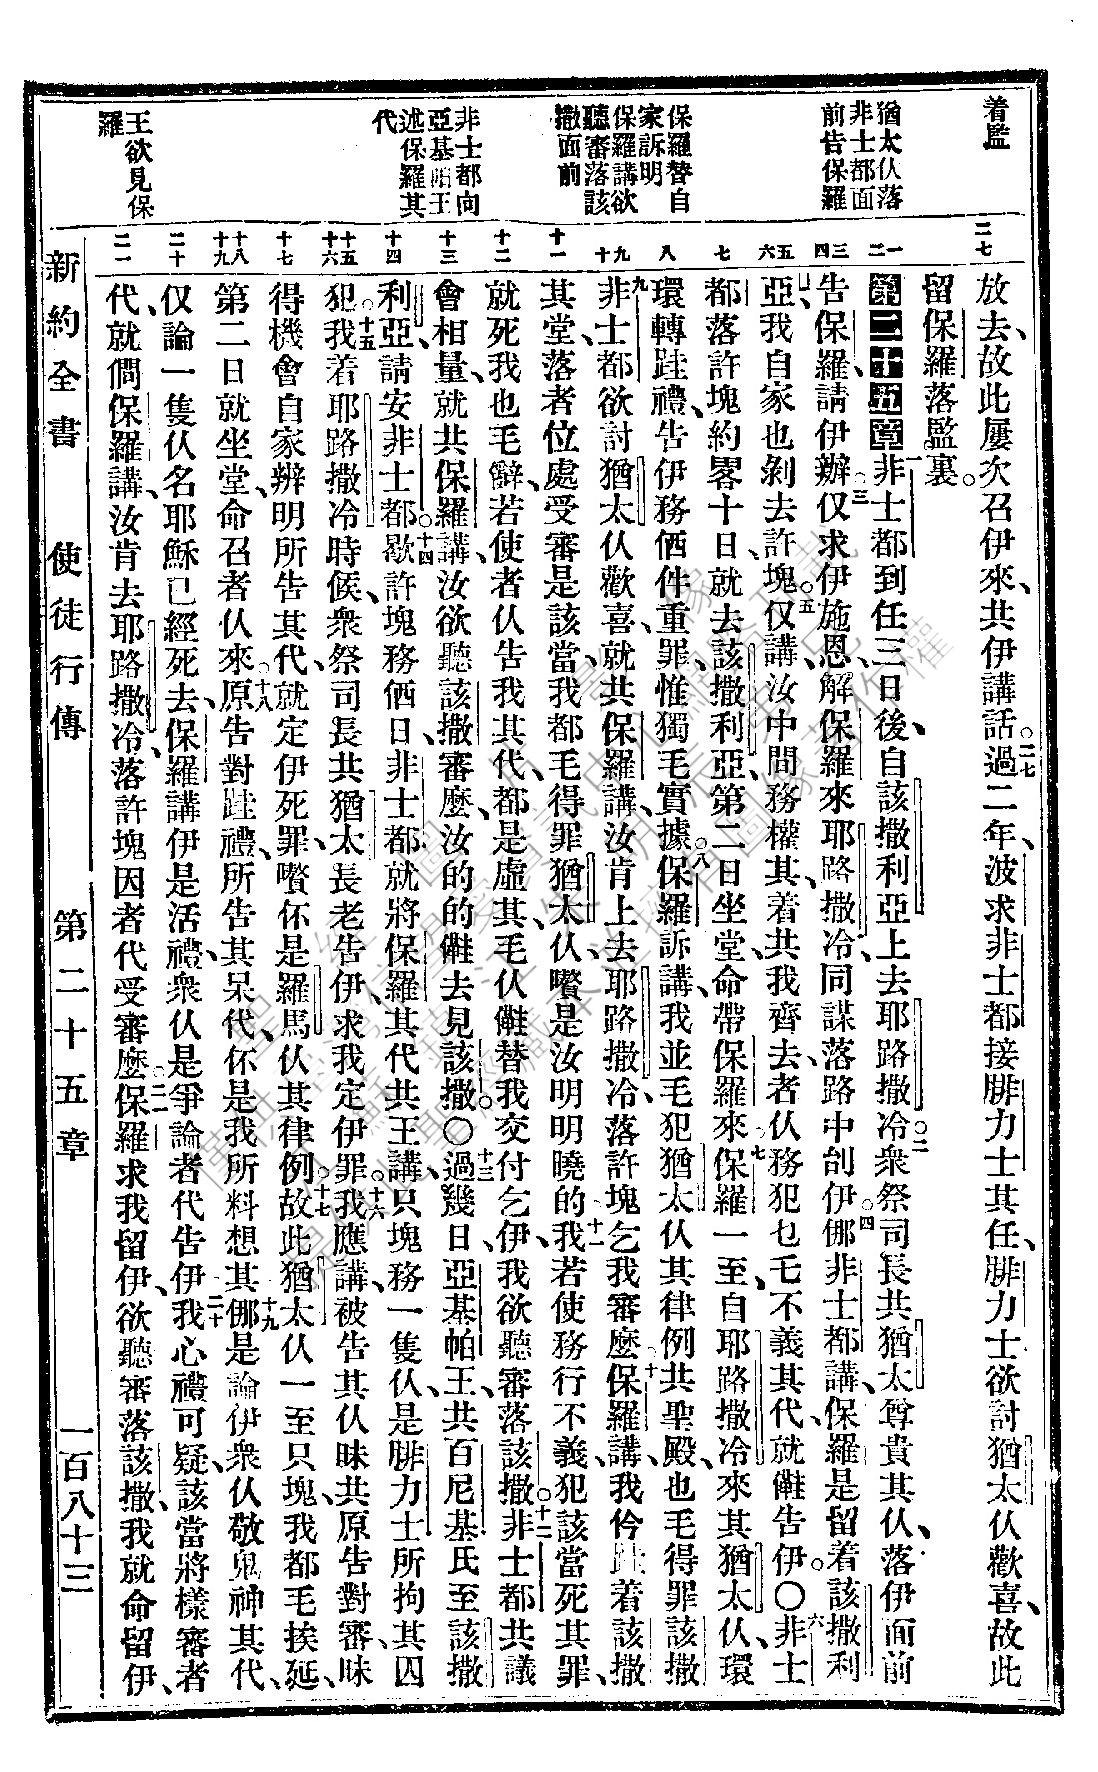 着監
猶太仫落
非士都面
前告保羅
保羅替自
家訴明
保羅講欲
聽審落該
撒面前
非士都向
亞基帕王
述保羅其
代
王欲見保
羅
二七
一
二
三
四
五
六
七
八
九
十
十一
十二
十三
十四
十五
十六
十七
十八
十九
二十
二一
放去、故此屢次召伊來、共伊講話。二七過二年、波求非士都接腓力士其任、腓力士欲討猶太仫歡喜、故此
留保羅落監裏。
第二十五章 一非士都到任三日後、自該撒利亞上去耶路撒冷。二衆祭司長共猶太尊貴其仫、落伊面前
告保羅、請伊辦、三仅求伊施恩、解保羅來耶路撒冷、同謀落路中刣伊。四㑚非士都講、保羅是留着該撒利
亞、我自家也剝去許塊。五仅講、汝中間務權其、着共我齊去、者仫務犯乜乇不義其代、就㒤告伊。〇六非士
都落許塊約畧十日、就去該撒利亞、第二日坐堂、命帶保羅來。七保羅一至、自耶路撒冷來其猶太仫、環
環轉跬禮、告伊務価件重罪、惟獨毛實據。八保羅訴講、我並毛犯猶太仫其律例、共聖殿、也毛得罪該撒
九非士都欲討猶太仫歡喜、就共保羅講、汝肯上去耶路撒冷、落許塊乞我審麼。十保羅講、我仱跬着該撒
其堂、落者位處受審是該當、我都毛得罪猶太仫、嚽是汝明明曉的。十一我若使務行不義、犯該當死其罪、
就死我也毛辭、若使者仫告我其代、都是虛其、毛仫㒤替我交付乞伊、我欲聽審落該撒。十二非士都共議
會相量、就共保羅講、汝欲聽該撒審麼、汝的的㒤去見該撒。〇十三過幾日、亞基帕王、共百尼基氏至該撒
利亞、請安非士都。十四歇許塊務価日、非士都就將保羅其代共王講、只塊務一隻仫、是腓力士所拘其囚
犯。十五我着耶路撒冷時候、衆祭司長共猶太長老告伊、求我定伊罪。十六我應講、被告其仫昧共原告對審、昧
得機會自家辨明所告其代、就定伊死罪、嚽伓是羅馬仫其律例。十七故此猶太仫一至只塊、我都毛挨延、
第二日就坐堂、命召者仫來。十八原告對跬禮、所告其呆代、伓是我所料想其。十九㑚是論伊衆仫敬鬼神其代、
仅論一隻仫名耶穌、已經死去、保羅講伊是活禮、衆仫是爭論者代告伊。二十我心禮可疑、該當將樣審者
代、就問保羅講、汝肯去耶路撒冷、落許塊因者代受審麼。二一保羅求我留伊、欲聽審落該撒、我就命留伊、
新約全書　使徒行傳　第二十五章　一百八十三